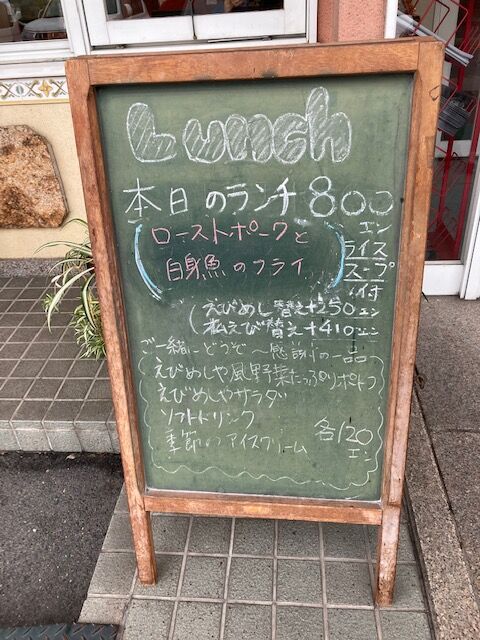 Lunch
本日のランチ 800
エン
ローストポークと
白身魚のフライ
ライス
スープ
(えびめし替え+250エン
(松えび替え+410エン
ご一緒にどうぞ〜感謝の一品
えびめしや風野菜たっぷりポトフ
えびめしやサラダ
ソフトドリンク
季節のアイスクリーム
各120
エン